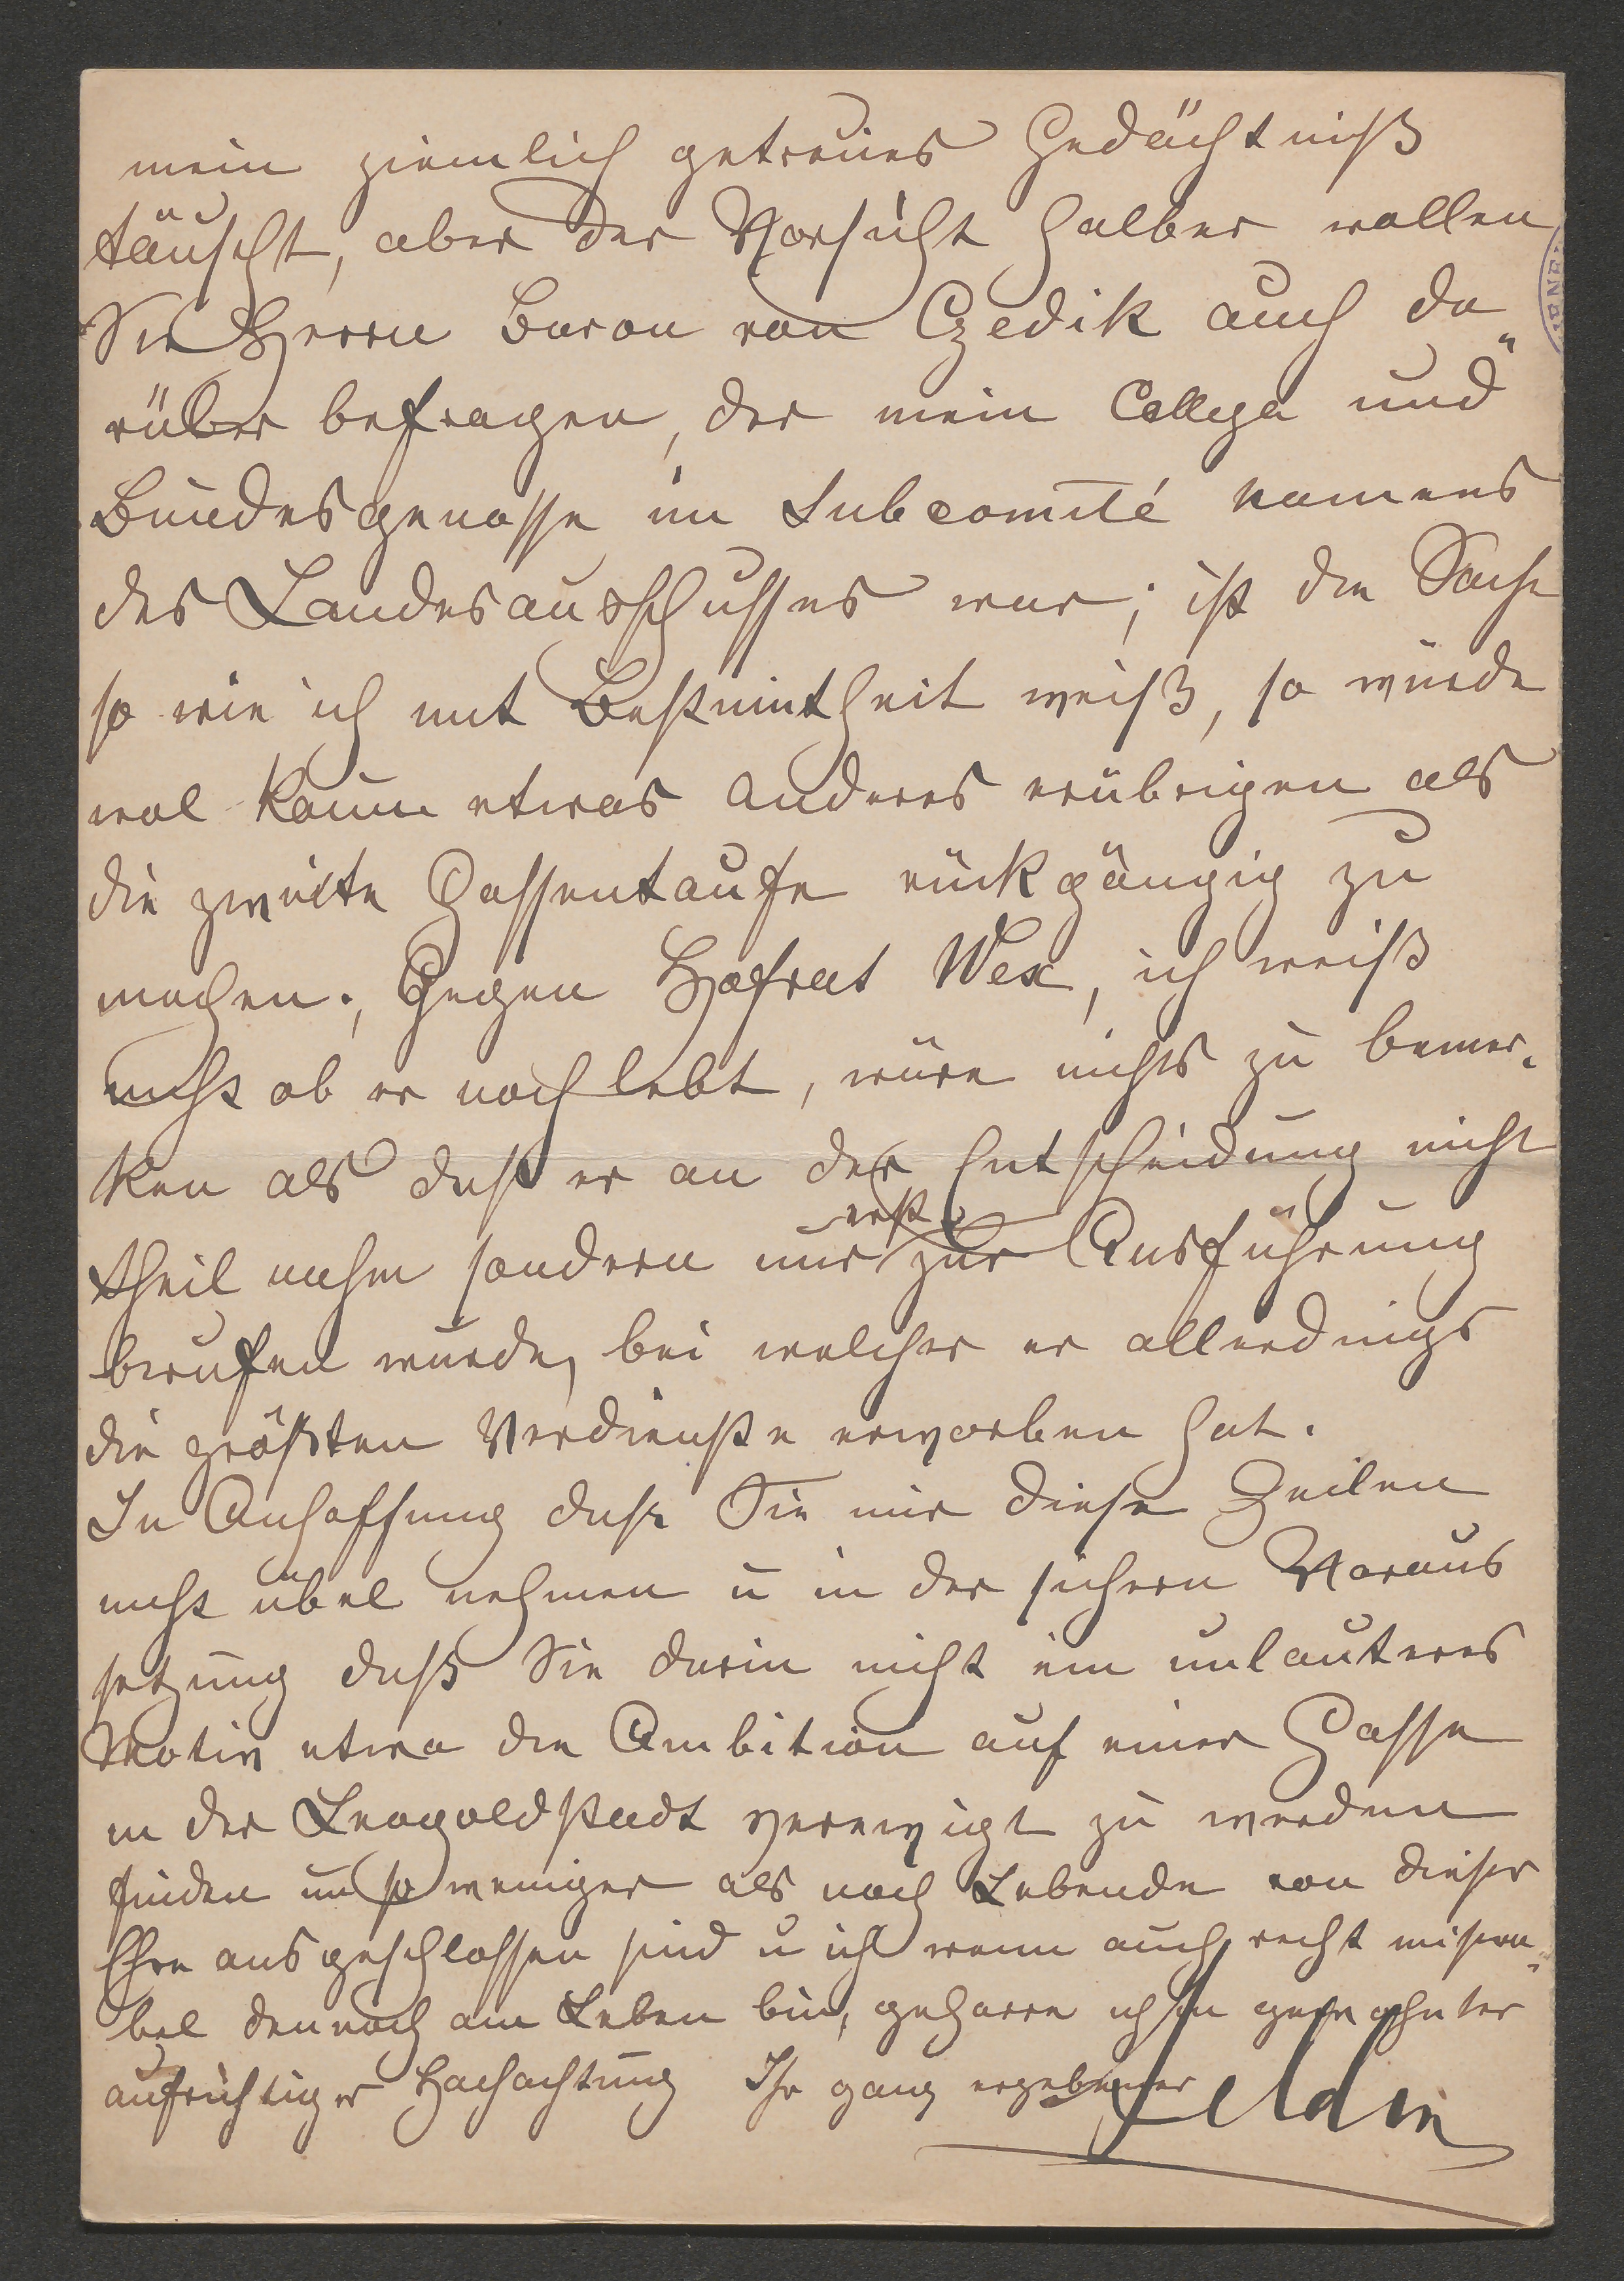 mein ziemlich getreues Gedächtniß
täuscht, aber der Vorsicht halber wollen
Sie Herrn Baron von Czedik auch da„
rüber befragen, der mein College und
Bundesgenosse im Subcomité namens
des Landesausschusses war; ist die Sache
so wie ich mit Bestimtheit weiß, so würde
wol kaum etwas anderes erübrigen als
die zweite Gassentaufe rückgängig zu
machen; Gegen Hofrat Wex, ich weiß
nicht ob er noch lebt, wäre nichts zu bemer-
ken als daß er an der Entscheidung nicht
theil nahm sondern nur erst zur Ausführung
berufen wurde, bei welcher er allerdings
die größten Verdienste erworben hat.
In Anhoffnung daß Sie mir diese Zeilen
nicht übel nehmen u in der sichern Voraus
setzung daß Sie darin nicht ein unlauteres
Motiv etwa die Ambition auf einer Gasse
in der Leopoldstadt verewigt zu werden
finden um so weniger als noch Lebende von dieser
Ehre ausgeschlossen sind u ich wenn auch recht misera„
bel dennoch am Leben bin, geharre ich in gewohnter
aufrichtiger Hochachtung Ihr ganz ergebener